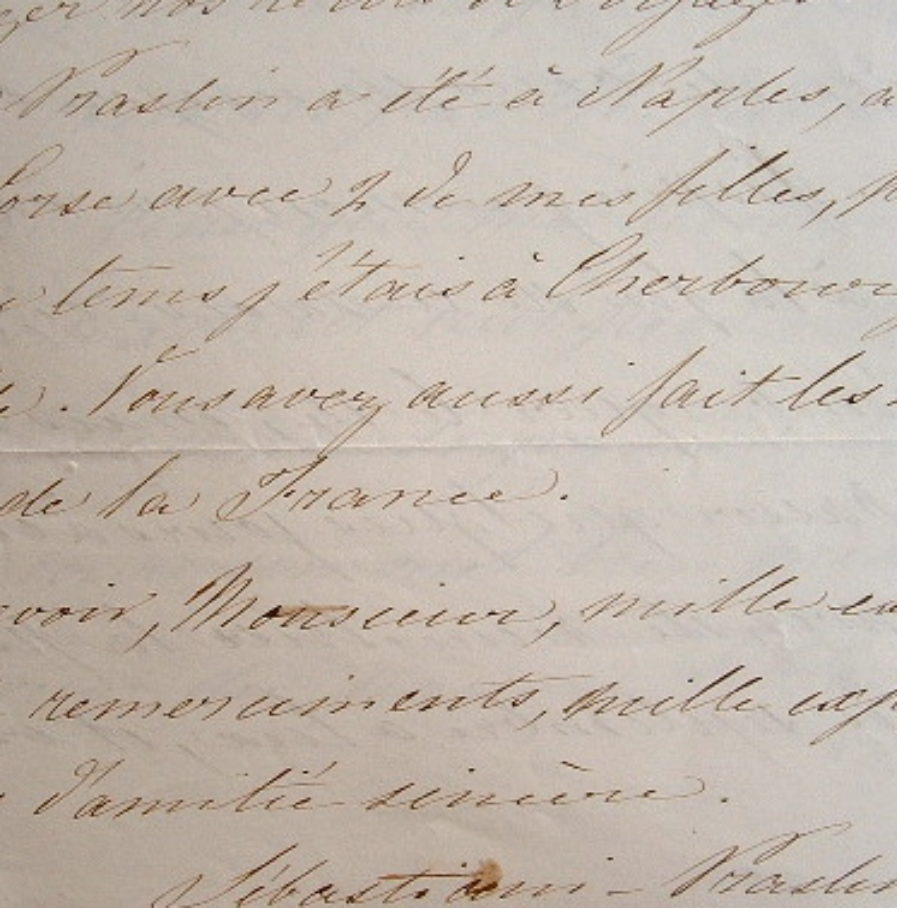 nos
Praslin a été à Naples, a
Corse avec 2 de mes filles, p
tems j'étais à Cherbourg
. Vous avez aussi fait les
de la France.
voir, Monsieur, mille ex
remerciments, mille exp
d'amitié sincère.
Sébastiani-Praslin